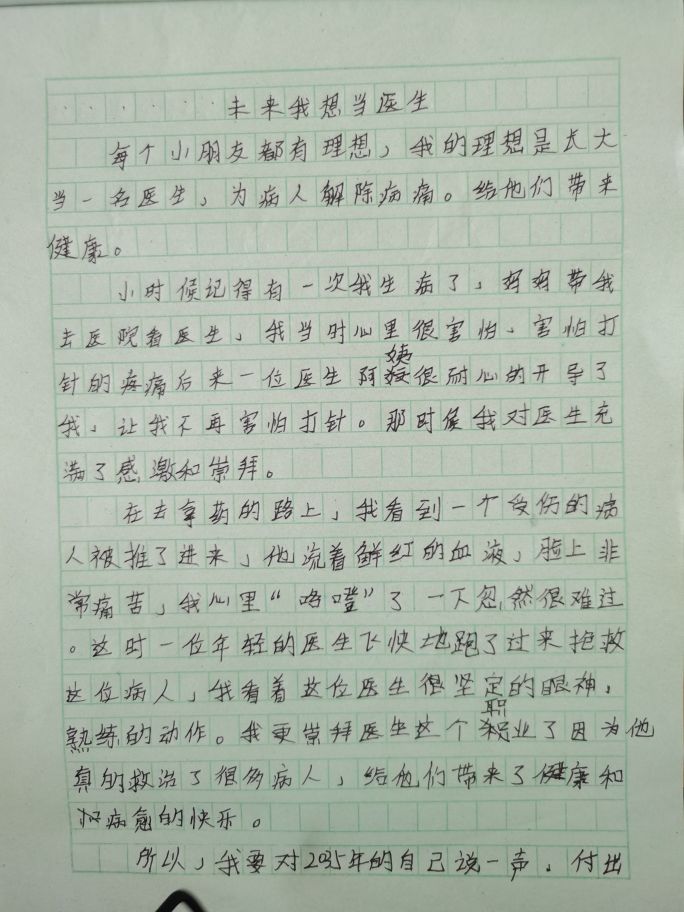 未来我想当医生
每个小朋友都有理想，我的理想是长大
当一名医生，为病人解除病痛。给他们带来
健康。
小时候记得有一次我生病了，妈妈带我
去医院看医生，我当时心里很害怕，害怕打
针的疼痛后来一位医生阿姨很耐心的开导了
我，让我不再害怕打针。那时候我对医生充
满了感激和崇拜。
在去拿药的路上，我看到一个受伤的病
人被推了进来，他流着鲜红的血液，脸上非
常痛苦，我心里“咯噔”了一下忽然很难过
。这时一位年轻的医生飞快地跑了过来抢救
这位病人，我看着这位医生很坚定的眼神，
熟练的动作。我更崇拜医生这个职业了因为他
真的救治了很多病人，给他们带来了健康和
和病愈的快乐。
所以，我要对2035年的自己说一声，付出